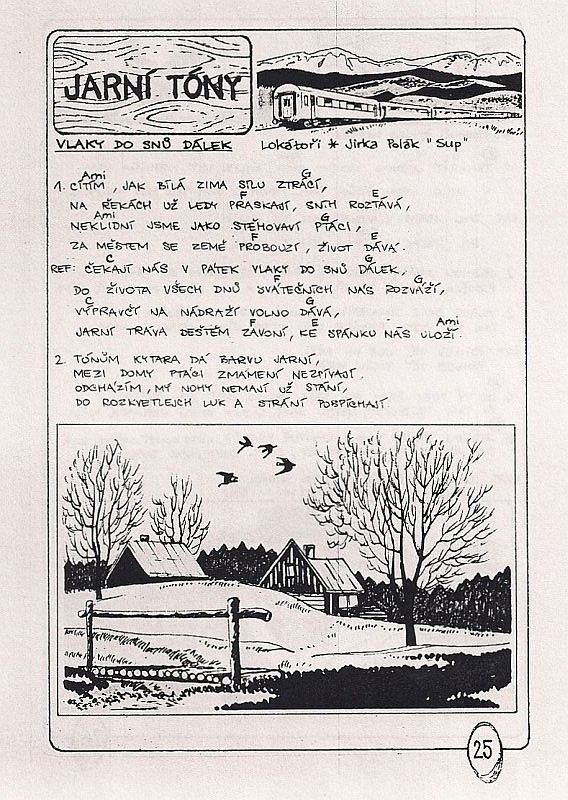 JARNÍ TÓNY
VLAKY DO SNŮ DÁLEK    Lokátoři * Jirka Polák "Sup"
Ami G
1. CÍTÍM, JAK BÍLÁ ZIMA SÍLU ZTRÁCÍ,
F E
NA ŘEKÁCH UŽ LEDY PRASKAJÍ, SNÍH ROZTÁVÁ,
Ami G
NEKLIDNÍ JSME JAKO STĚHOVAVÍ PTÁCI,
F E
ZA MĚSTEM SE ZEMĚ PROBOUZÍ, ŽIVOT DÁVÁ.
C G
REF: ČEKAJÍ NÁS V PÁTEK VLAKY DO SNŮ DÁLEK,
F G
DO ŽIVOTA VŠECH DNŮ SVÁTEČNÍCH NÁS ROZVÁŽÍ,
C G
VÝPRAVČÍ NA NÁDRAŽÍ VOLNO DÁVÁ,
F E Ami
JARNÍ TRÁVA DEŠTĚM ZAVONÍ, KE SPÁNKU NÁS ULOŽÍ.
2. TÓNŮM KYTARA DÁ BARVU JARNÍ,
MEZI DOMY PTÁCI ZMÁMENÍ NEZPÍVAJÍ.
ODCHÁZÍM, MÝ NOHY NEMAJÍ UŽ STÁNÍ,
DO ROZKVETLEJCH LUK A STRÁNÍ POSPÍCHAJÍ.
25